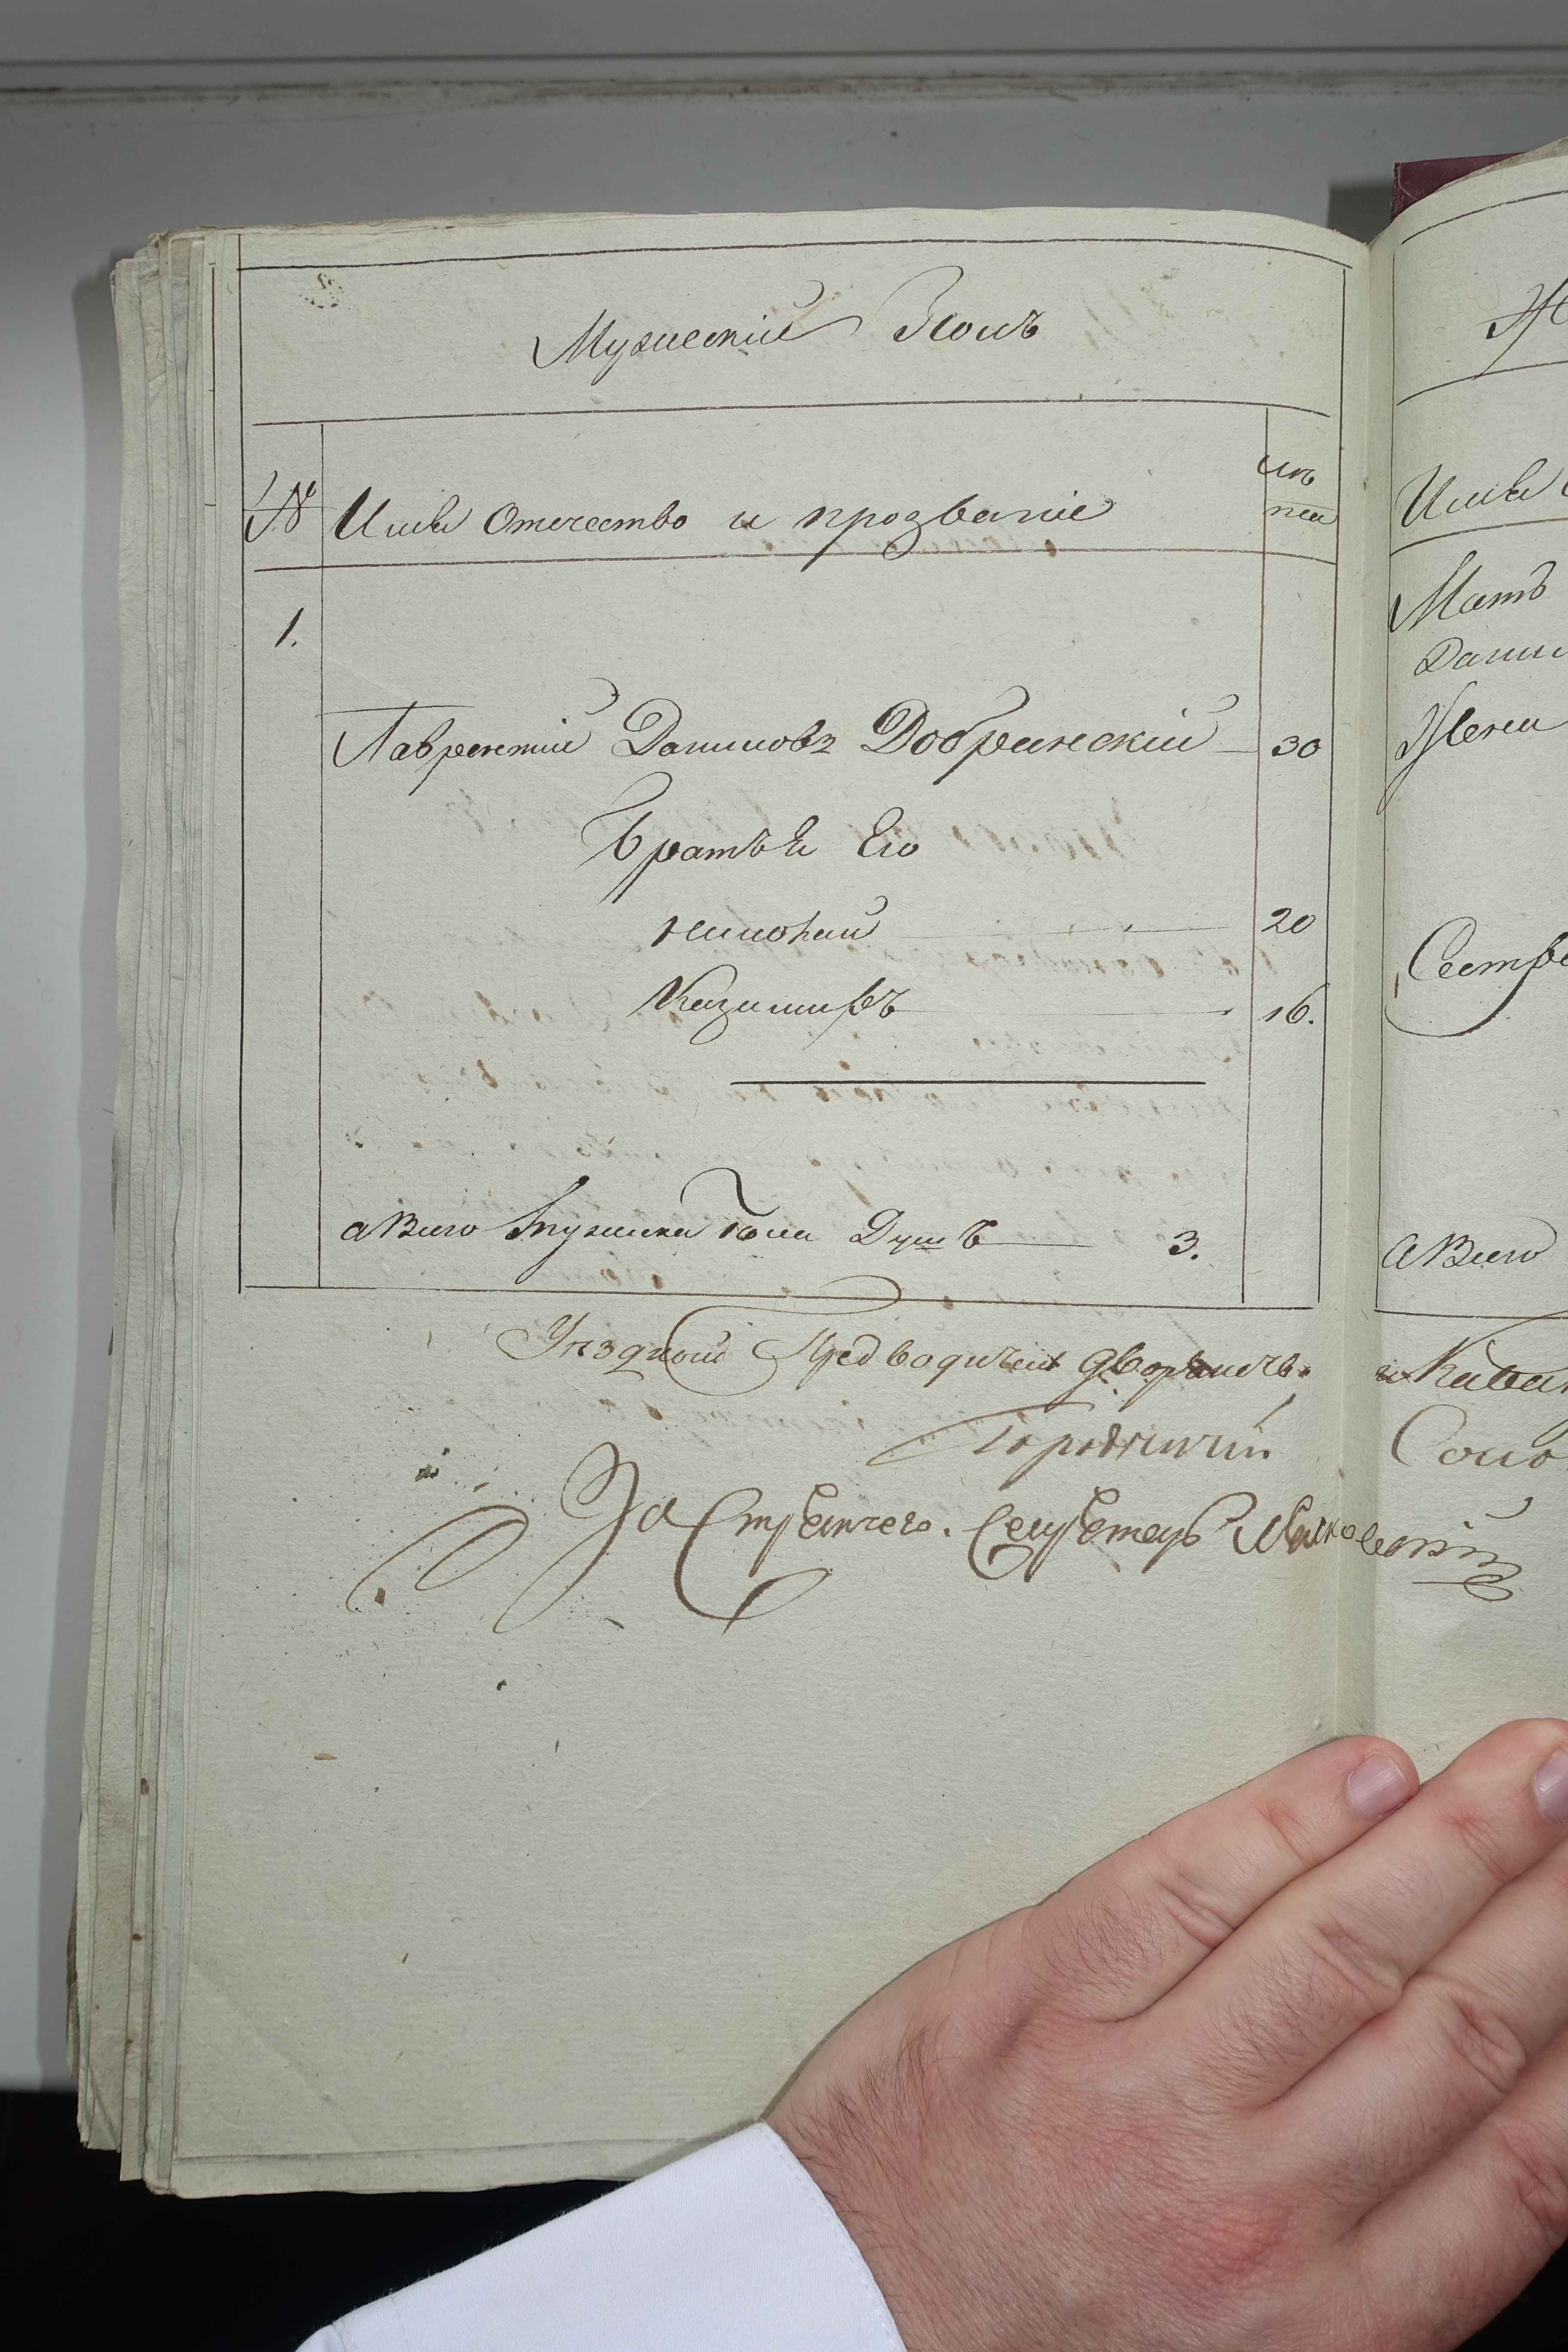 Мужескій Полъ
№ Имя Отечество и прозваніе лѣта
1.
Лаврентій Даниловъ Добрянскій 30
Братья Его
20
Казимиръ 16.
а Всего мужеска пола Душъ 3.
Уездной Предводитель дворянъ
Городничій
За Стряпчего. Секретарь
Мать
Сестры
а Всего